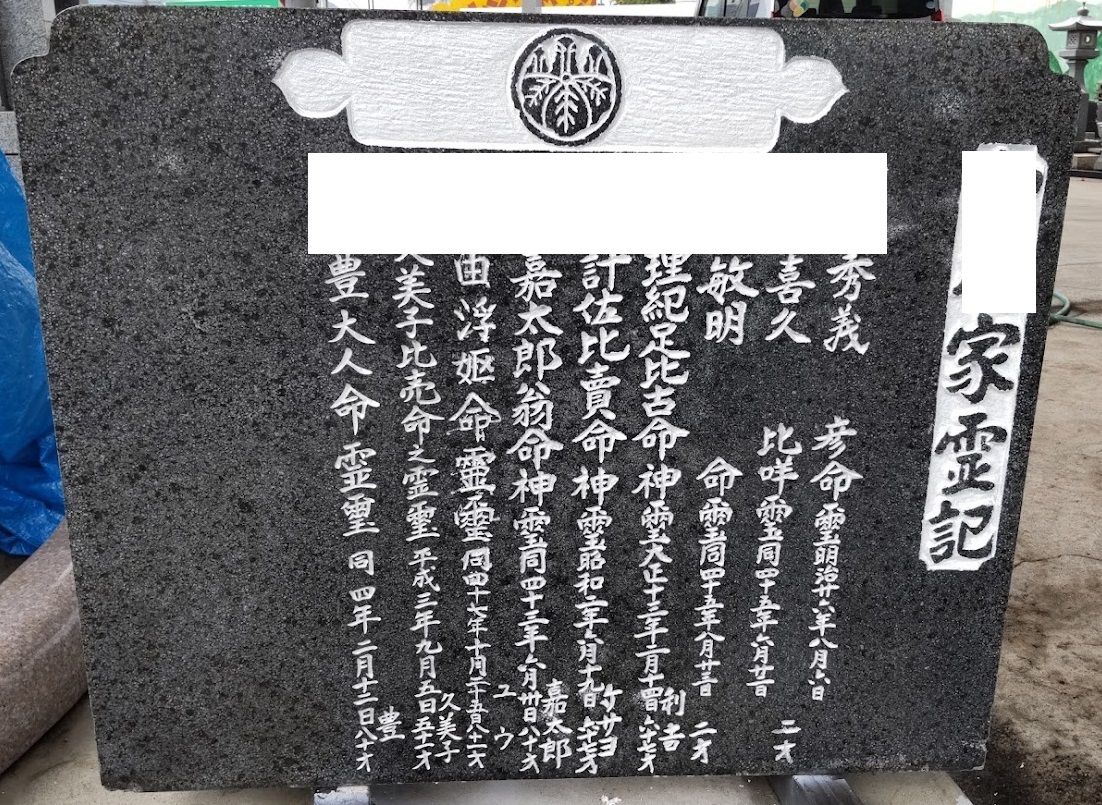 家霊記
秀義 彦命靈明治廿六年八月六日
喜久 比咩靈同四十五年六月廿一日 二才
敏明 命靈同四十五年八月廿三日 二才
理紀足比古命神靈大正十三年二月十四日六十七才 利吉
計佐比賣命神靈昭和二年六月十九日六十七才 ケサヨ
嘉太郎翁命神靈同四十三年六月卅日八十才 嘉太郎
由浮嫗命靈璽同四十七年十月二十五日八十一才 ユウ
久美子比売命之霊璽平成三年九月五日五十一才 久美子
豊大人命霊璽同四年二月十二日八十才 豊